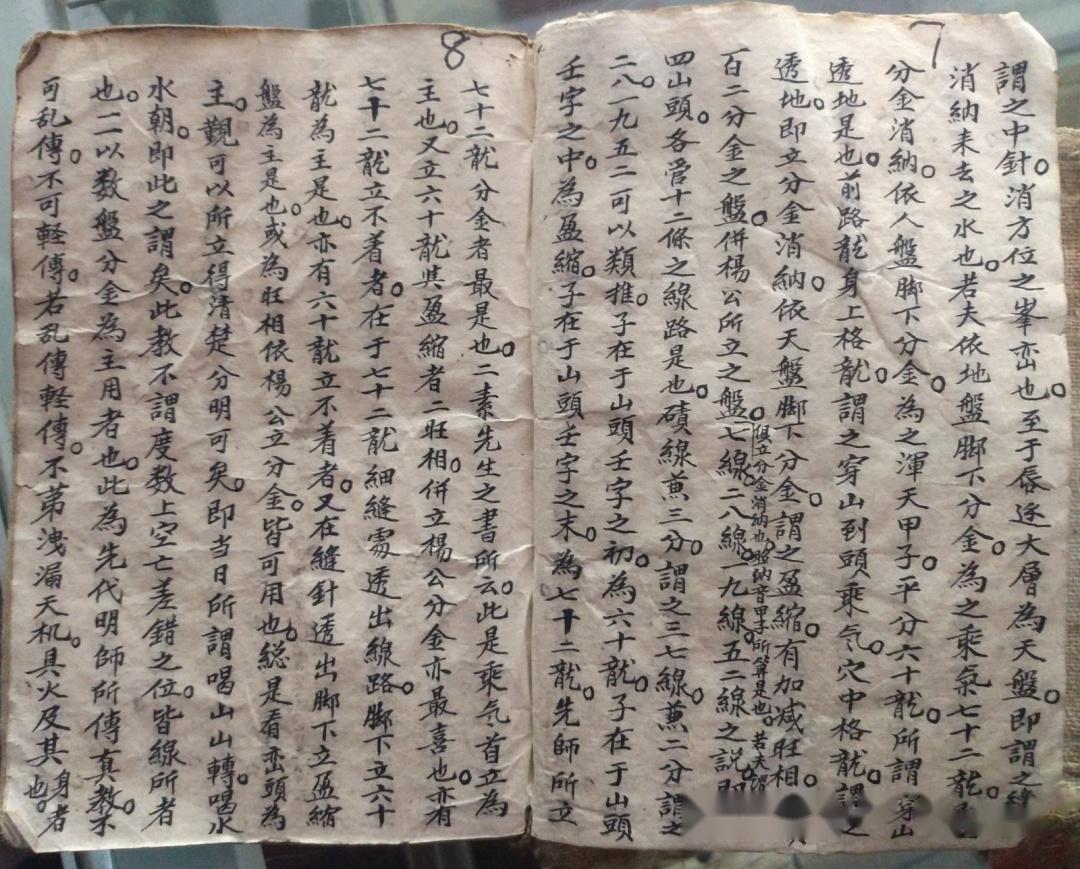 7
謂之中針。消方位之峯巒也。至于唇逐大層為天盤。即謂之縫
消納来去之水也。若夫依地盤脚下分金。為之乗氣七十二龍。
分金消納。依人盤脚下分金。為之渾天甲子。平分六十龍。所謂穿山
透地是也。前路龍身上格龍。謂之穿山到頭乗气。穴中格龍。謂之
透地。即立分金消納。依天盤脚下分金。謂之盈縮。有加减旺相。
俱立分金消納也。照納音甲子所筭是也。若夫
百二分金之盤。併楊公所立之盤。一七線。二八線。一九線。五二線之説。即
四山頭。各管十二條之線路是也。磧線兼三分。謂之三七線。兼二分謂之
二八。一九五二可以類推。子在于山頭壬字之初。為六十龍。子在于山頭
壬字之中。為盈縮。子在于山頭壬字之末。為七十二龍。先師所立
8
七十二龍分金者最是也。二素先生之書所云。此是乗气首立為
主也。又立六十龍與盈縮者二旺相。併立楊公分金亦最喜也。亦有
七十二龍立不着者。在于七十二龍細縫處透出線路。脚下立六十
龍為主是也。亦有六十龍立不着者。又在縫針透出脚下立盈縮
盤為主是也。或為旺相依楊公立分金。皆可用也。総是看巒頭為
主。觀可以所立得清楚分明可矣。即当日所謂喝山山轉。喝水
水朝。即此之謂矣。此教不謂度数上空亡差錯之位。皆線所者
也。二以数盤分金為主用者也。此為先代明師所傳真教。不
可乱傳。不可軽傳。若乱傳軽傳。不第洩漏天机。具火及其身者
也。